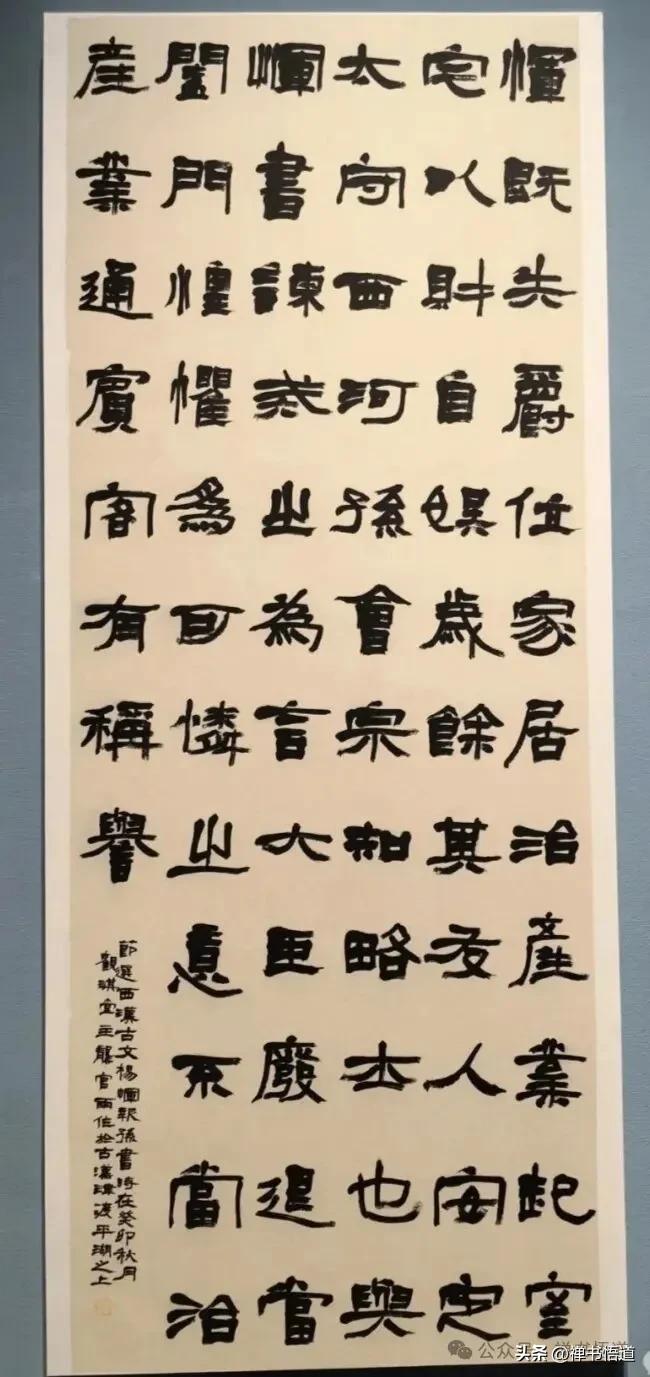 惲既失爵位家居治產業起室
宅以財自娛歲餘其友人安定
太守西河孫會宗知略士也與
惲書諫戒之為言大臣廢退當
闔門惶懼爲可憐之意不當治
産業通賓客有稱譽
節選西漢古文楊惲報孫書時在癸卯秋月
觀淇主龔官雨作於古漢津渡平湖之上
公众号 禅书悟道
头条 @禅书悟道